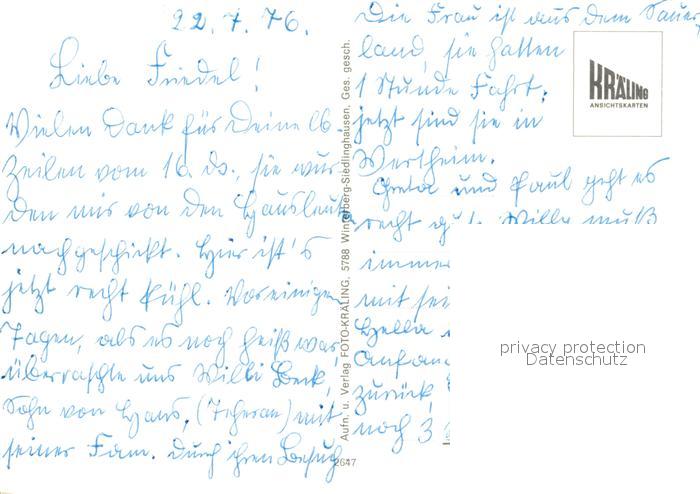 22.7.76.
Liebe Friedel!
Vielen Dank für Deine lb.
Zeilen vom 16. ds., sie wur-
den mir von den Hausleuten
nachgeschickt. Hier ist's
jetzt recht kühl. Vor einigen
Tagen, als es noch heiß war,
überraschte uns Willi Beck,
Sohn von Hans, (Teheran) mit
seiner Fam. Durch ihren Besuch
Die Frau ist aus dem Sauer-
land, sie hatten
1 Stunde Fahrt,
jetzt sind sie in
Wertheim.
Greta und Paul geht es
recht gut. Willi muß
immer
mit sei
Hella
Anfang
zurück,
noch 3
KRÄLING
ANSICHTSKARTEN
Aufn. u. Verlag FOTO-KRÄLING, 5788 Winterberg-Siedlinghausen, Ges. gesch.
2647
privacy protection
Datenschutz